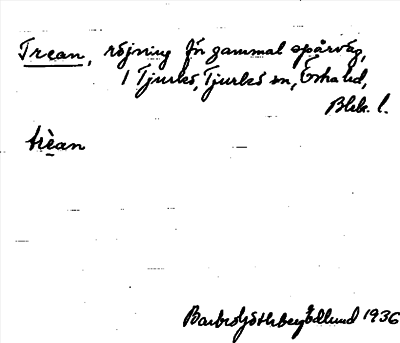 Trean, röjning för gammal spårväg,
1 Tjurkö, Tjurkö sn, Östra hd,
Blek. l.
trèan
Barbro Söderberg Edlund 1936